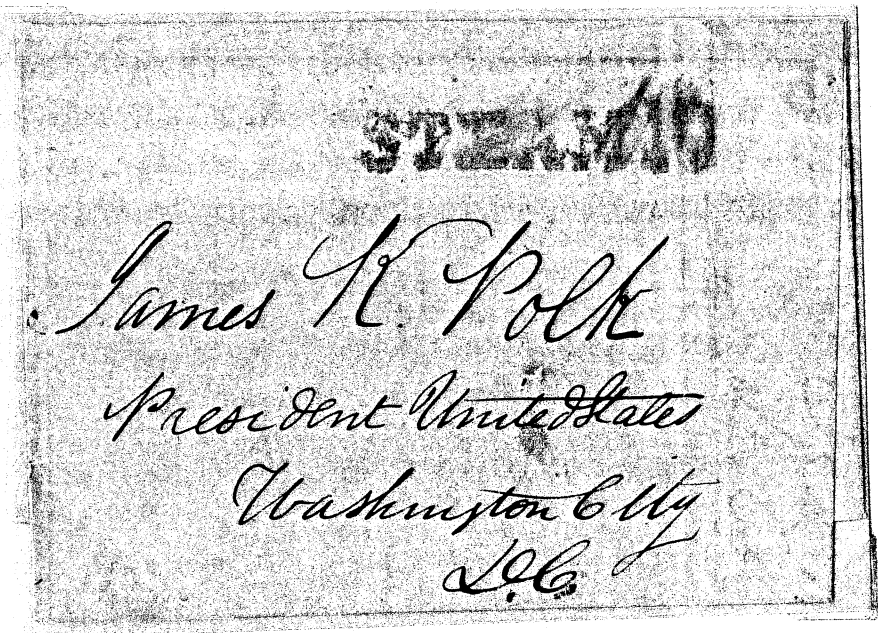 STEAM 10
James K. Polk
President United States
Washington City
D.C.